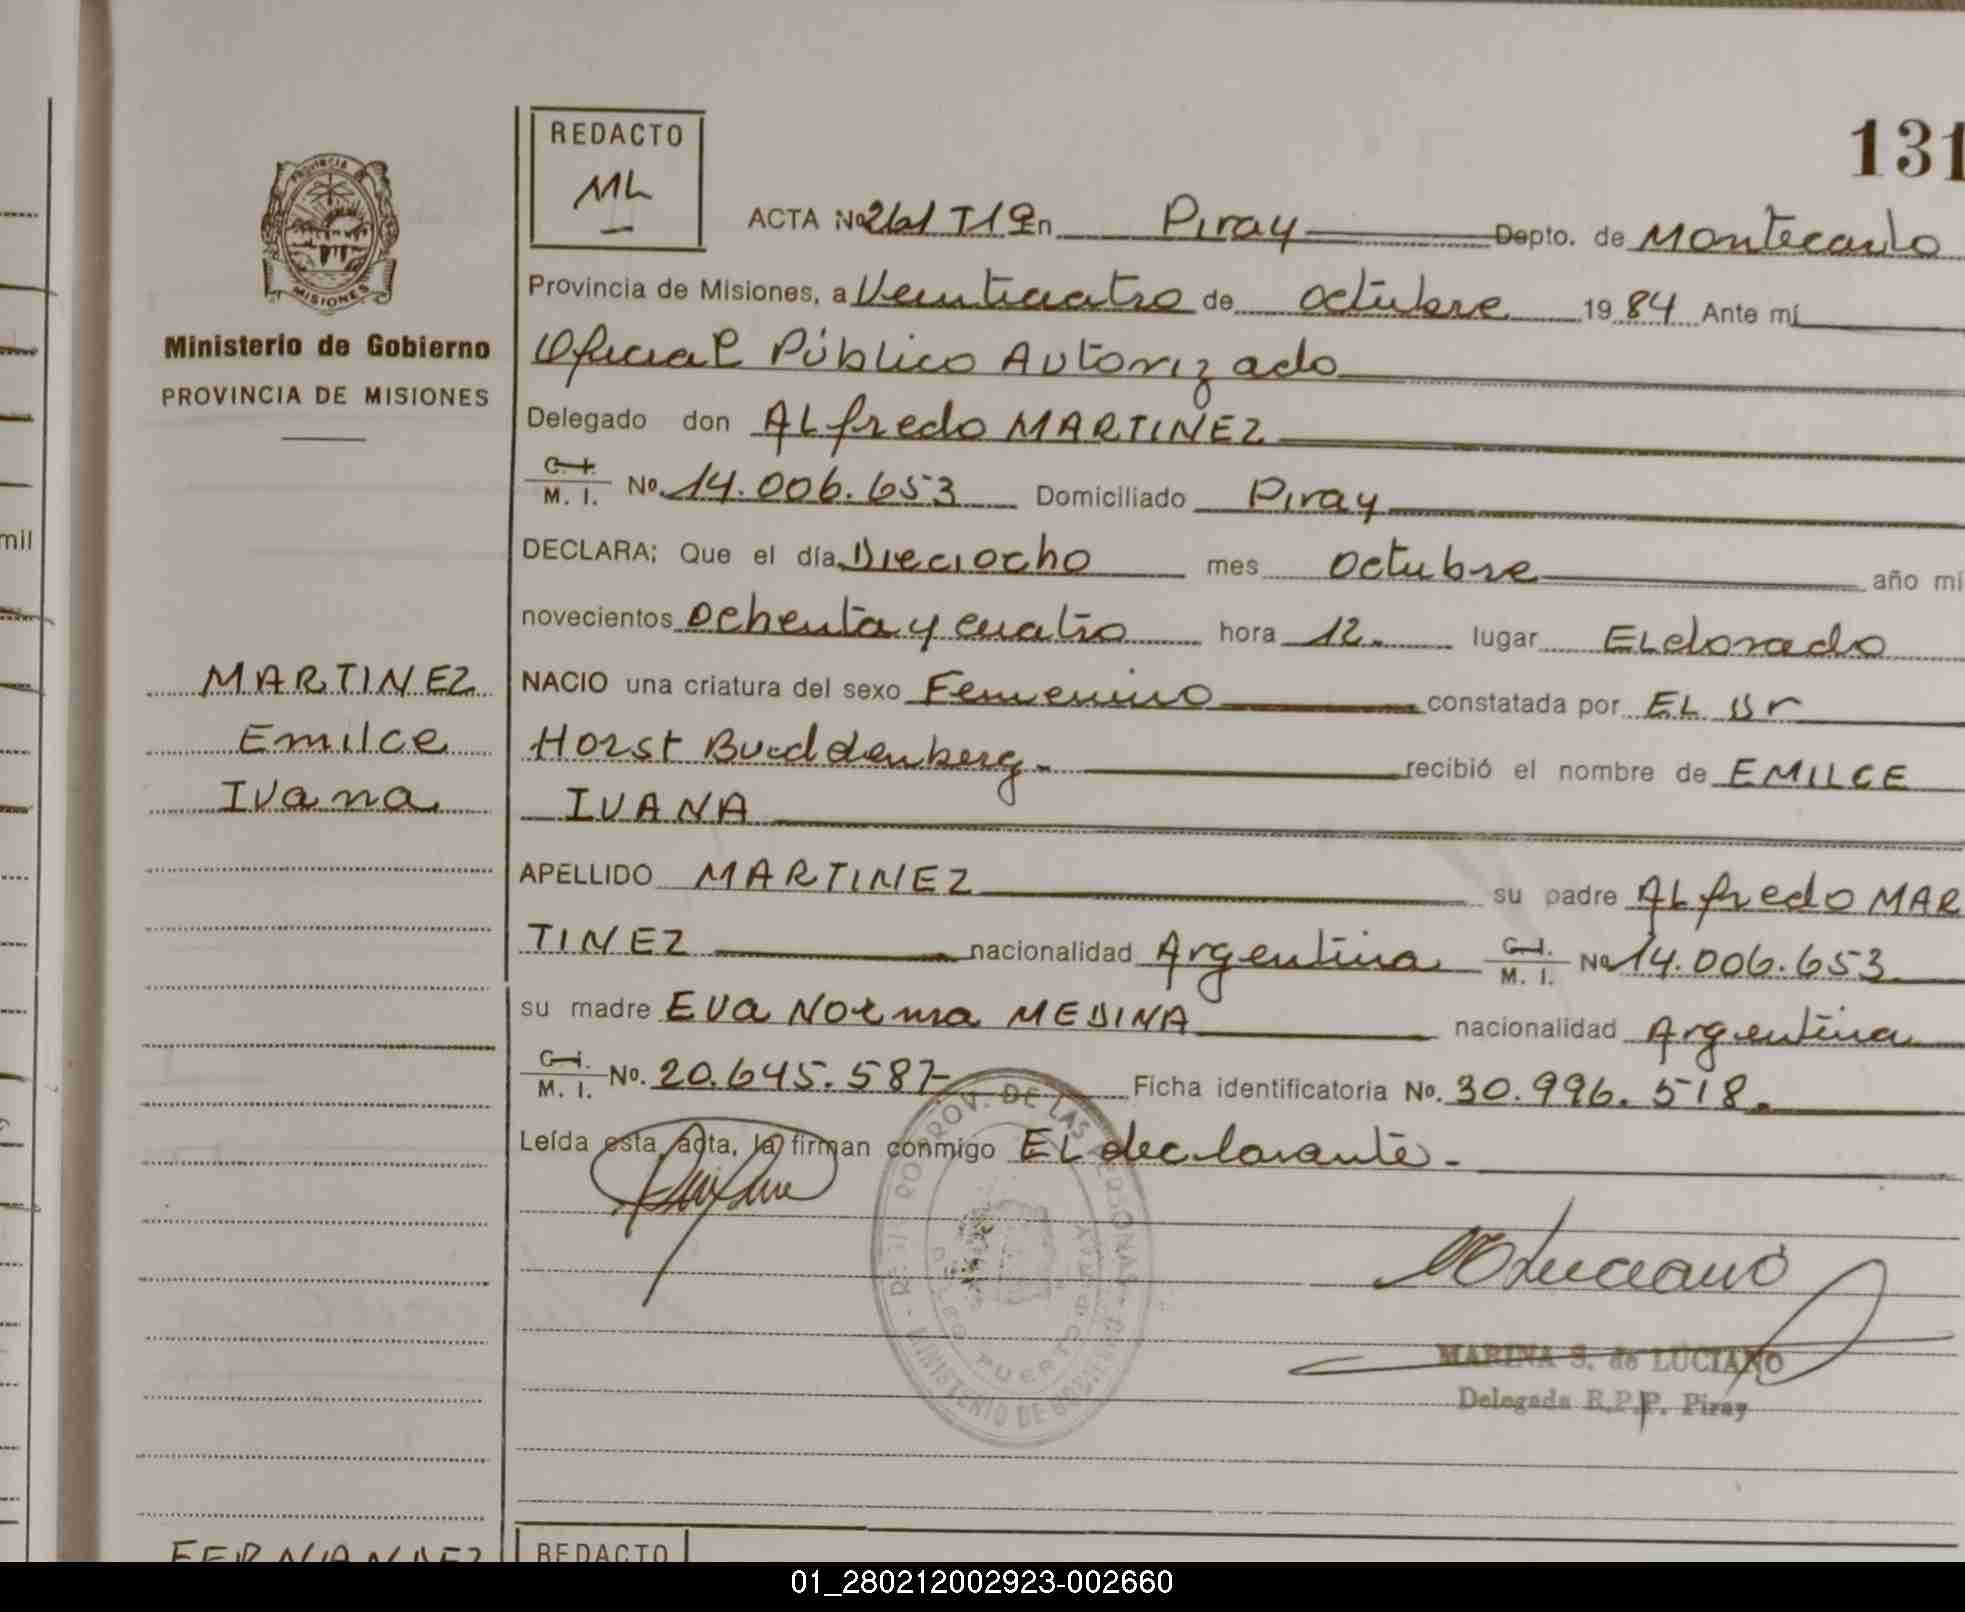 131
REDACTO
ML
PROVINCIA DE
MISIONES
Ministerio de Gobierno
PROVINCIA DE MISIONES
ACTA No 261 T1º En Piray Depto. de Montecarlo
Provincia de Misiones, a Veinticuatro de octubre 1984 Ante mí
Oficial Público Autorizado
Delegado don ALfredo MARTINEZ
C. I. M. I. No. 14.006.653 Domiciliado Piray
DECLARA: Que el día Dieciocho mes octubre año mi
mil
novecientos ochenta y cuatro hora 12. lugar ELdorado
MARTINEZ
NACIO una criatura del sexo Femenino constatada por EL Dr
Emilce
Horst Buddenberg. recibió el nombre de EMILCE
Ivana
IVANA
APELLIDO MARTINEZ su padre ALfredo MAR
TINEZ nacionalidad Argentina C. I. M. I. No 14.006.653
su madre EVa Norma MEDINA nacionalidad Argentina
C. I. M. I. No. 20.645.587 Ficha identificatoria No. 30.996.518.
Leída esta acta, la firman conmigo EL declarante.
PROV. DE LAS PERSONAS
MINISTERIO DE GOBIERNO
PUERTO PIRAY
Luciano
MARINA S. de LUCIANO
Delegada R.P.P. Piray
FERNANDEZ
REDACTO
01_280212002923-002660